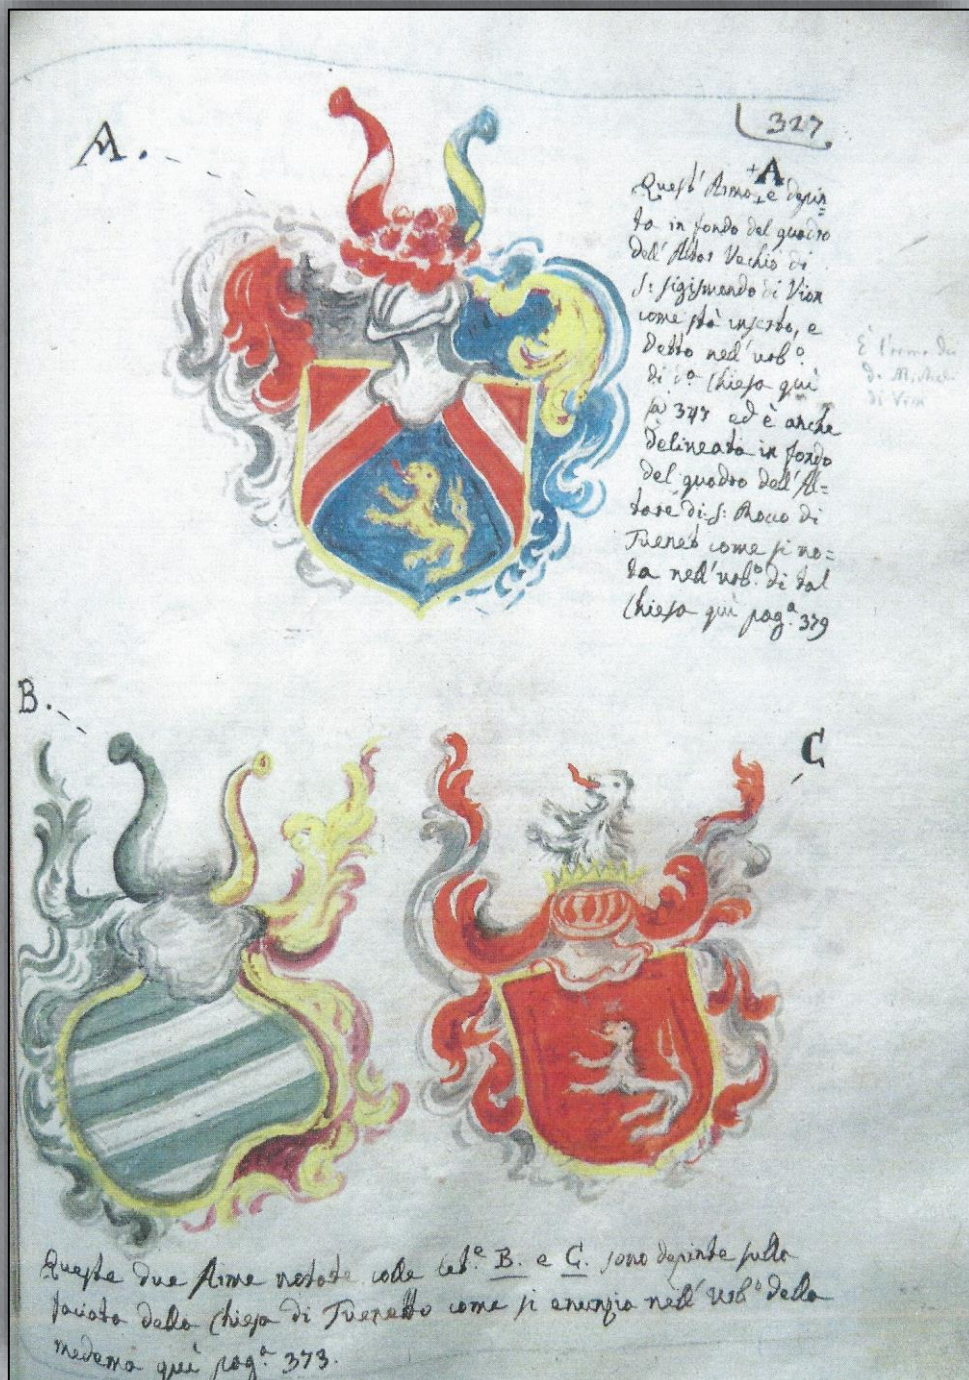 A.
327
+A
Quest' Arma, è depin=
ta in fondo del quadro
dell' Altar Vechio di
S: Sigismondo di Vion
come stà inserto, e
detto nell' urb.º
di d.ª Chiesa quì
fa 347 ed è anche
delineata in fondo
del quadro dell' Al=
tare di S: Rocco di
Tueneto come si no=
ta nell' urb.º di tal
Chiesa quì pag.ª 379
È l'arma de
de Micheli
di Vion
B.
C
Queste due Arme notate colle let.e B. e C. sono depinte sulla
faciata della Chiesa di Tuenetto come si anunzia nell' urb.º della
medema quì pag.ª 373.